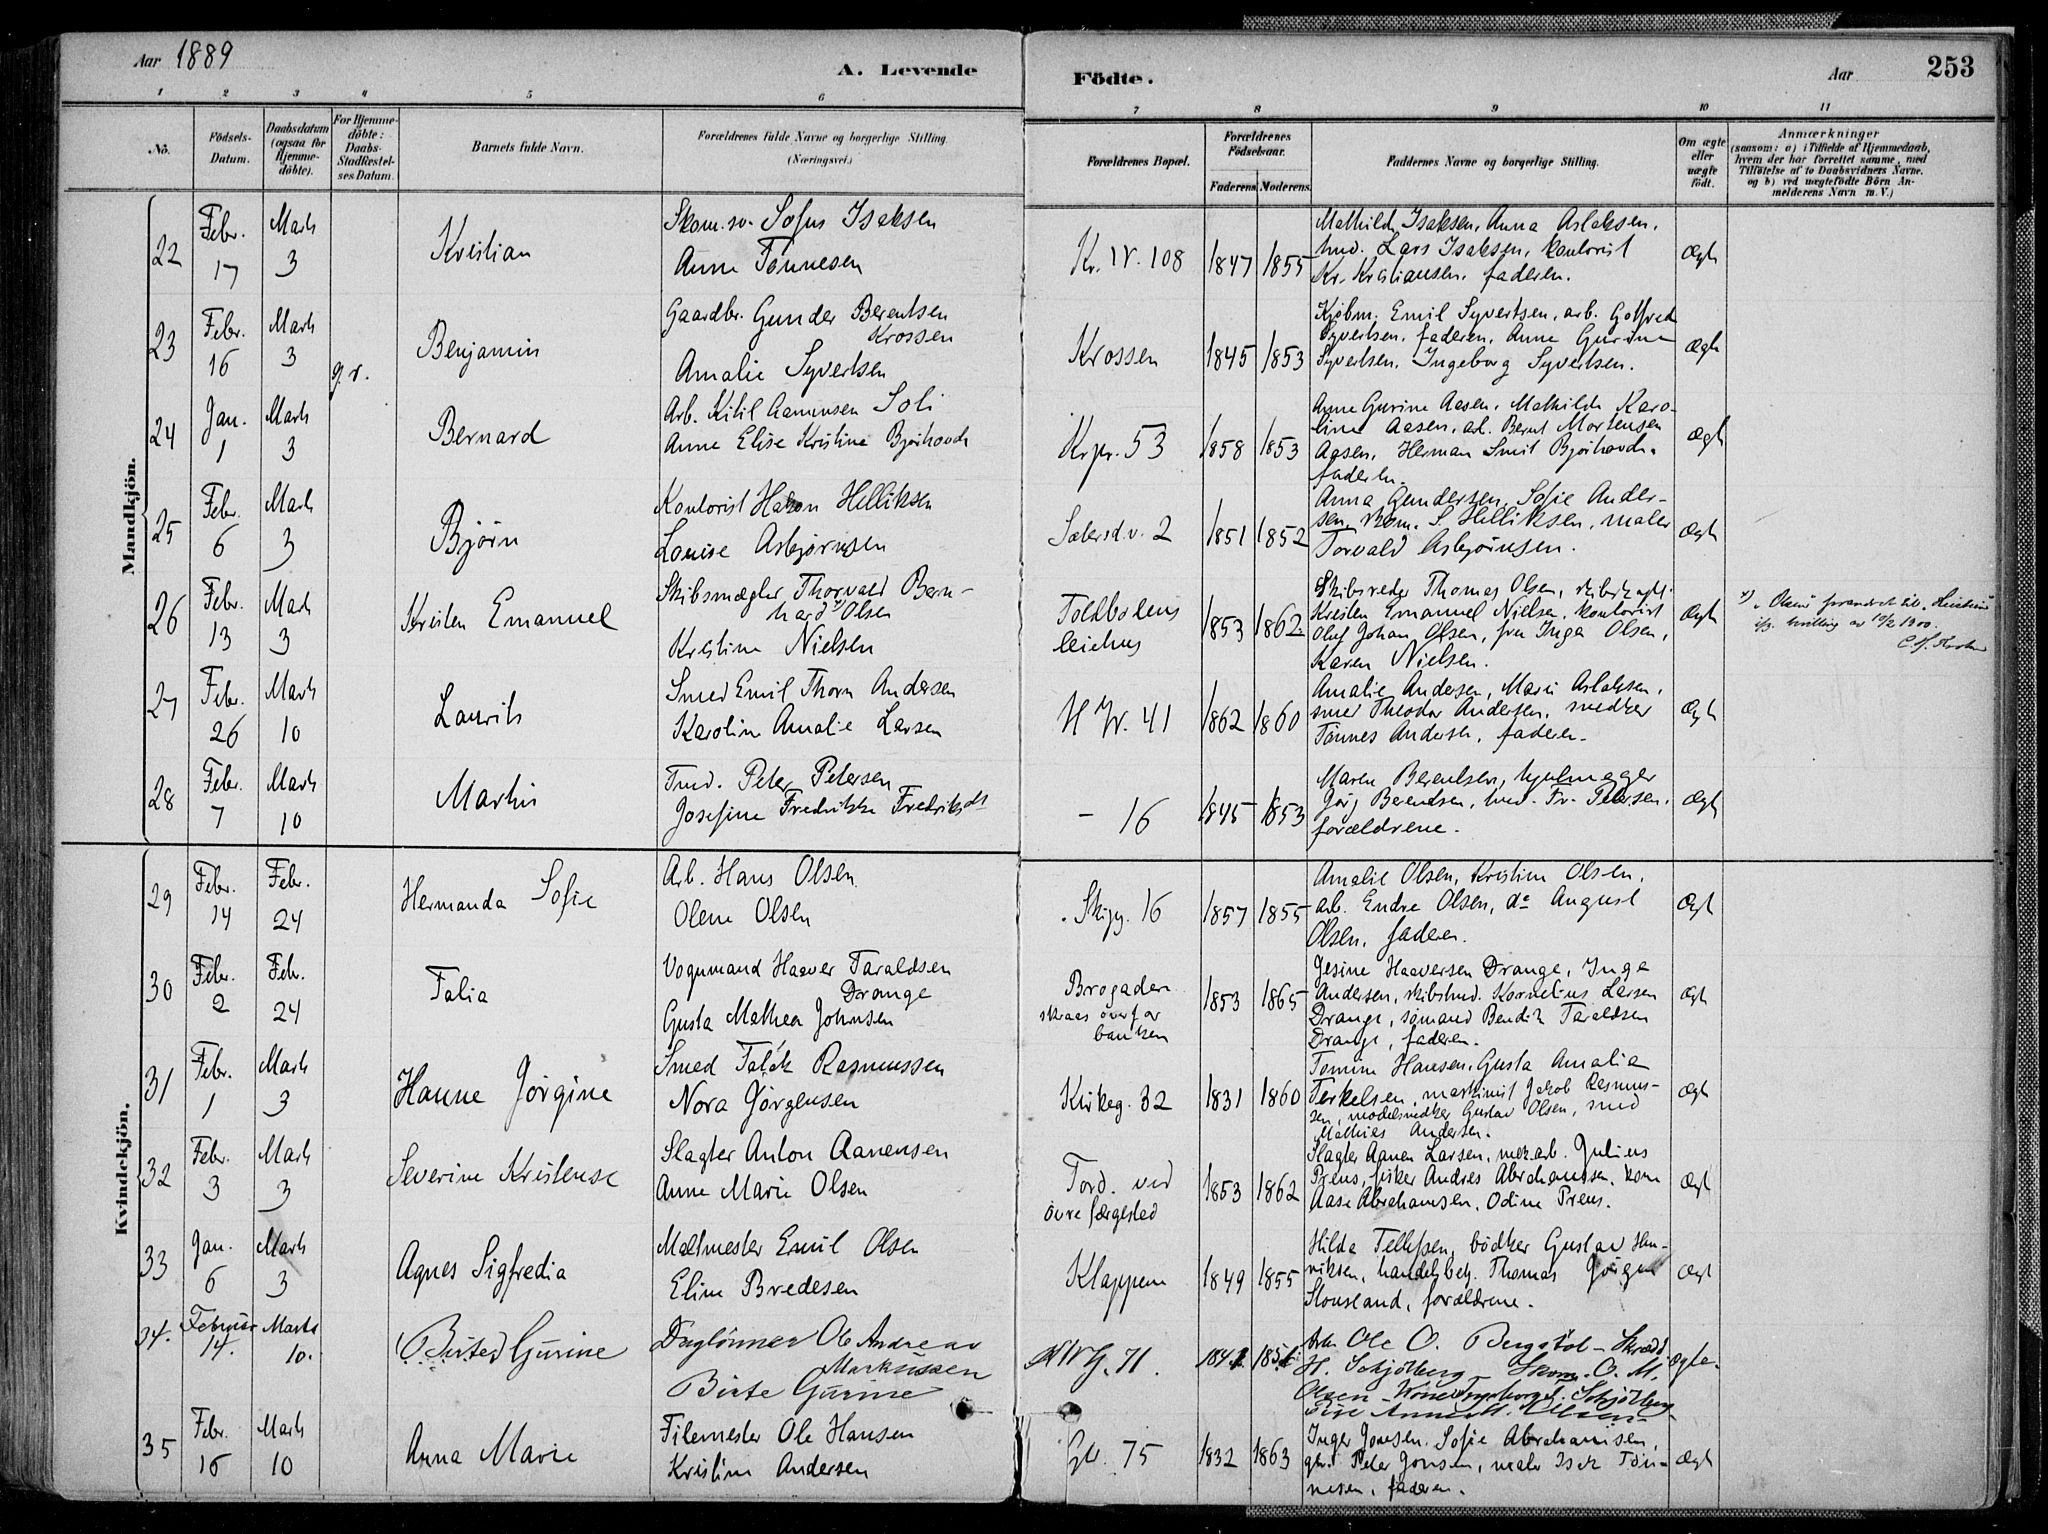 Aar 1889
A. Levende Födte.
Aar
253
1 2 3 4 5 6 7 8 9 10 11
Nô.
Födsels-Datum.
Daabsdatum (ogsaa for Hjemme-döbte).
For Hjemme-döbte: Daabs-Stadfæstel-ses Datum.
Barnets fulde Navn.
Forældrenes fulde Navne og borgerlige Stilling. (Næringsvei.)
Forældrenes Bopæl.
Forældrenes Födselsaar.
Faderens. Moderens.
Faddernes Navne og borgerlige Stilling.
Om ægte eller uægte födt.
Anmærkninger
(saasom: a) i Tilfælde af Hjemmedaab,
hvem der har forrettet samme, med
Tilföielse af to Daabsvidners Navne.
og b) ved uægtefödte Börn An-
melderens Navn m. V.)
Mandkjön.
22 Febr. 17 Marts 3
Kristian
Skom.sv. Sofus Isaksen
Anne Tønnesen
Kr. IV. 108 1847 1855
Mathilde Isaksen, Anna Aslaksen,
tmd. Lars Isaksen, kontorist
Kr. Kristiansen, faderen.
Ægt
23 Febr. 16 Marts 3
g.v.
Benjamin
Gaardbr. Gunder Berentsen
Krossen
Amalie Syvertsen
Krossen 1845 1853
Kjøbm. Emil Syvertsen, arb. Gotfred
Syvertsen, faderen, Anne Gurine
Syvertsen, Ingeborg Syvertsen.
Ægt
24 Jan. 1 Marts 3
Bernard
Arb. Kitil Aamunsen Soli
Anne Elise Kristine
Krpr. 53 1858 1853
Anne Gurine Aasen, Mathilde Karo-
line Aasen, arb. Bernt Mortensen
Aasen, Herman Smit
faderen.
Ægt
25 Febr. 6 Marts 3
Bjørn
Kontorist Hakon Helliksen
Louise Asbjørnsen
Sætersd.v. 2 1851 1852
Anna Gundersen, Sofie Ander-
sen, skom. S. Helliksen, maler
Torvald Asbjørnsen.
Ægt
26 Febr. 13 Marts 3
Kristen Emanuel
Skibsmægler Thorvald Bern-
hard x) Olsen
Kristine Nielsen
Toldbodens
1853 1862
Skibsreder Thomas Olsen, skibskapt.
Kristen Emanuel Nielsen, kontorist
Oluf Johan Olsen, fru Inga Olsen,
Karen Nielsen.
Ægt
x) "Olsen" forandret til
bevilling av 10/2 1900.
27 Febr. 26 Marts 10
Laurits
Smed Emil Thorn Andersen
Karoline Amalie Larsen
H W. 41 1862 1860
Amalie Andersen, Marie Aslaksen,
smed Theodor Andersen, snedker
Tønnes Andersen, faderen.
Ægt
28 Febr. 7 Marts 10
Martin
Tmd. Peter Petersen
Josefine Fredrikke Fredriksdt
– 16 1845 1853
Maren Berentsen, hjulmager
Jørg Berentsen, tmd. Fr. Petersen,
forældrene.
Ægt
Kvindekjön.
29 Febr. 14 Febr. 24
Hermanda Sofie
Arb. Hans Olsen
Olene Olsen
Skipg. 16 1857 1855
Amalie Olsen, Kristine Olsen,
arb. Endre Olsen, do August
Olsen, faderen.
Ægt
30 Febr. 2 Febr. 24
Talia
Vognmand Haaver Taraldsen
Drange
Gusta Mathea Johnsen
Brogaden
skraas overfor
banken
1853 1865
Gesine Haaversen Drange, Inge
Andersen, skibstmd. Kornelius Larsen
Drange, sømand Bendik Taraldsen
Drange, faderen.
Ægt
31 Febr. 1 Marts 3
Hanne Jørgine
Smed Falck Rasmussen
Nora Jørgensen
Kirkeg. 32 1831 1860
Tomine Hansen, Gusta Amalia
Terkelsen, maskinist Jakob Rasmus-
sen, modelsnedker Gustav Olsen, smed
Mathies Andersen.
Ægt
32 Febr. 3 Marts 3
Severine Kristense
Slagter Anton Aanensen
Anne Marie Olsen
Tord. ved
övre færgested
1853 1862
Slagter Aanen Larsen, mek.arb. Julius
Preus, fisker Andres Abrahamsen, kone
Aase Abrahamsen, Odine Preus.
Ægt
33 Jan. 6 Marts 3
Agnes Sigfredia
Maltmester Emil Olsen
Eline Bredesen
Klappen 1849 1855
Hilda Tellefsen, bödker Gustav Hen-
riksen, handelsbetj. Thomas Jørgen
Stousland, forældrene.
Ægt
34. Februar 14. Marts 10.
Birte Gurine
Daglönner Ole Andreas
Markussen
Birte Gurine
71.
Arb. Ole O. Bergstöl – Skrædd.
H. Schjölberg – Skom. O. M.
Olsen
ægte.
35 Febr. 16 Marts 10
Anna Marie
Filemester Ole Hansen
Kristine Andersen
Gl. 75 1832 1863
Inger Jonsen, Sofie Abrahamsen,
Peter Jonsen, maler Isak Tön-
nesen, faderen.
Ægt